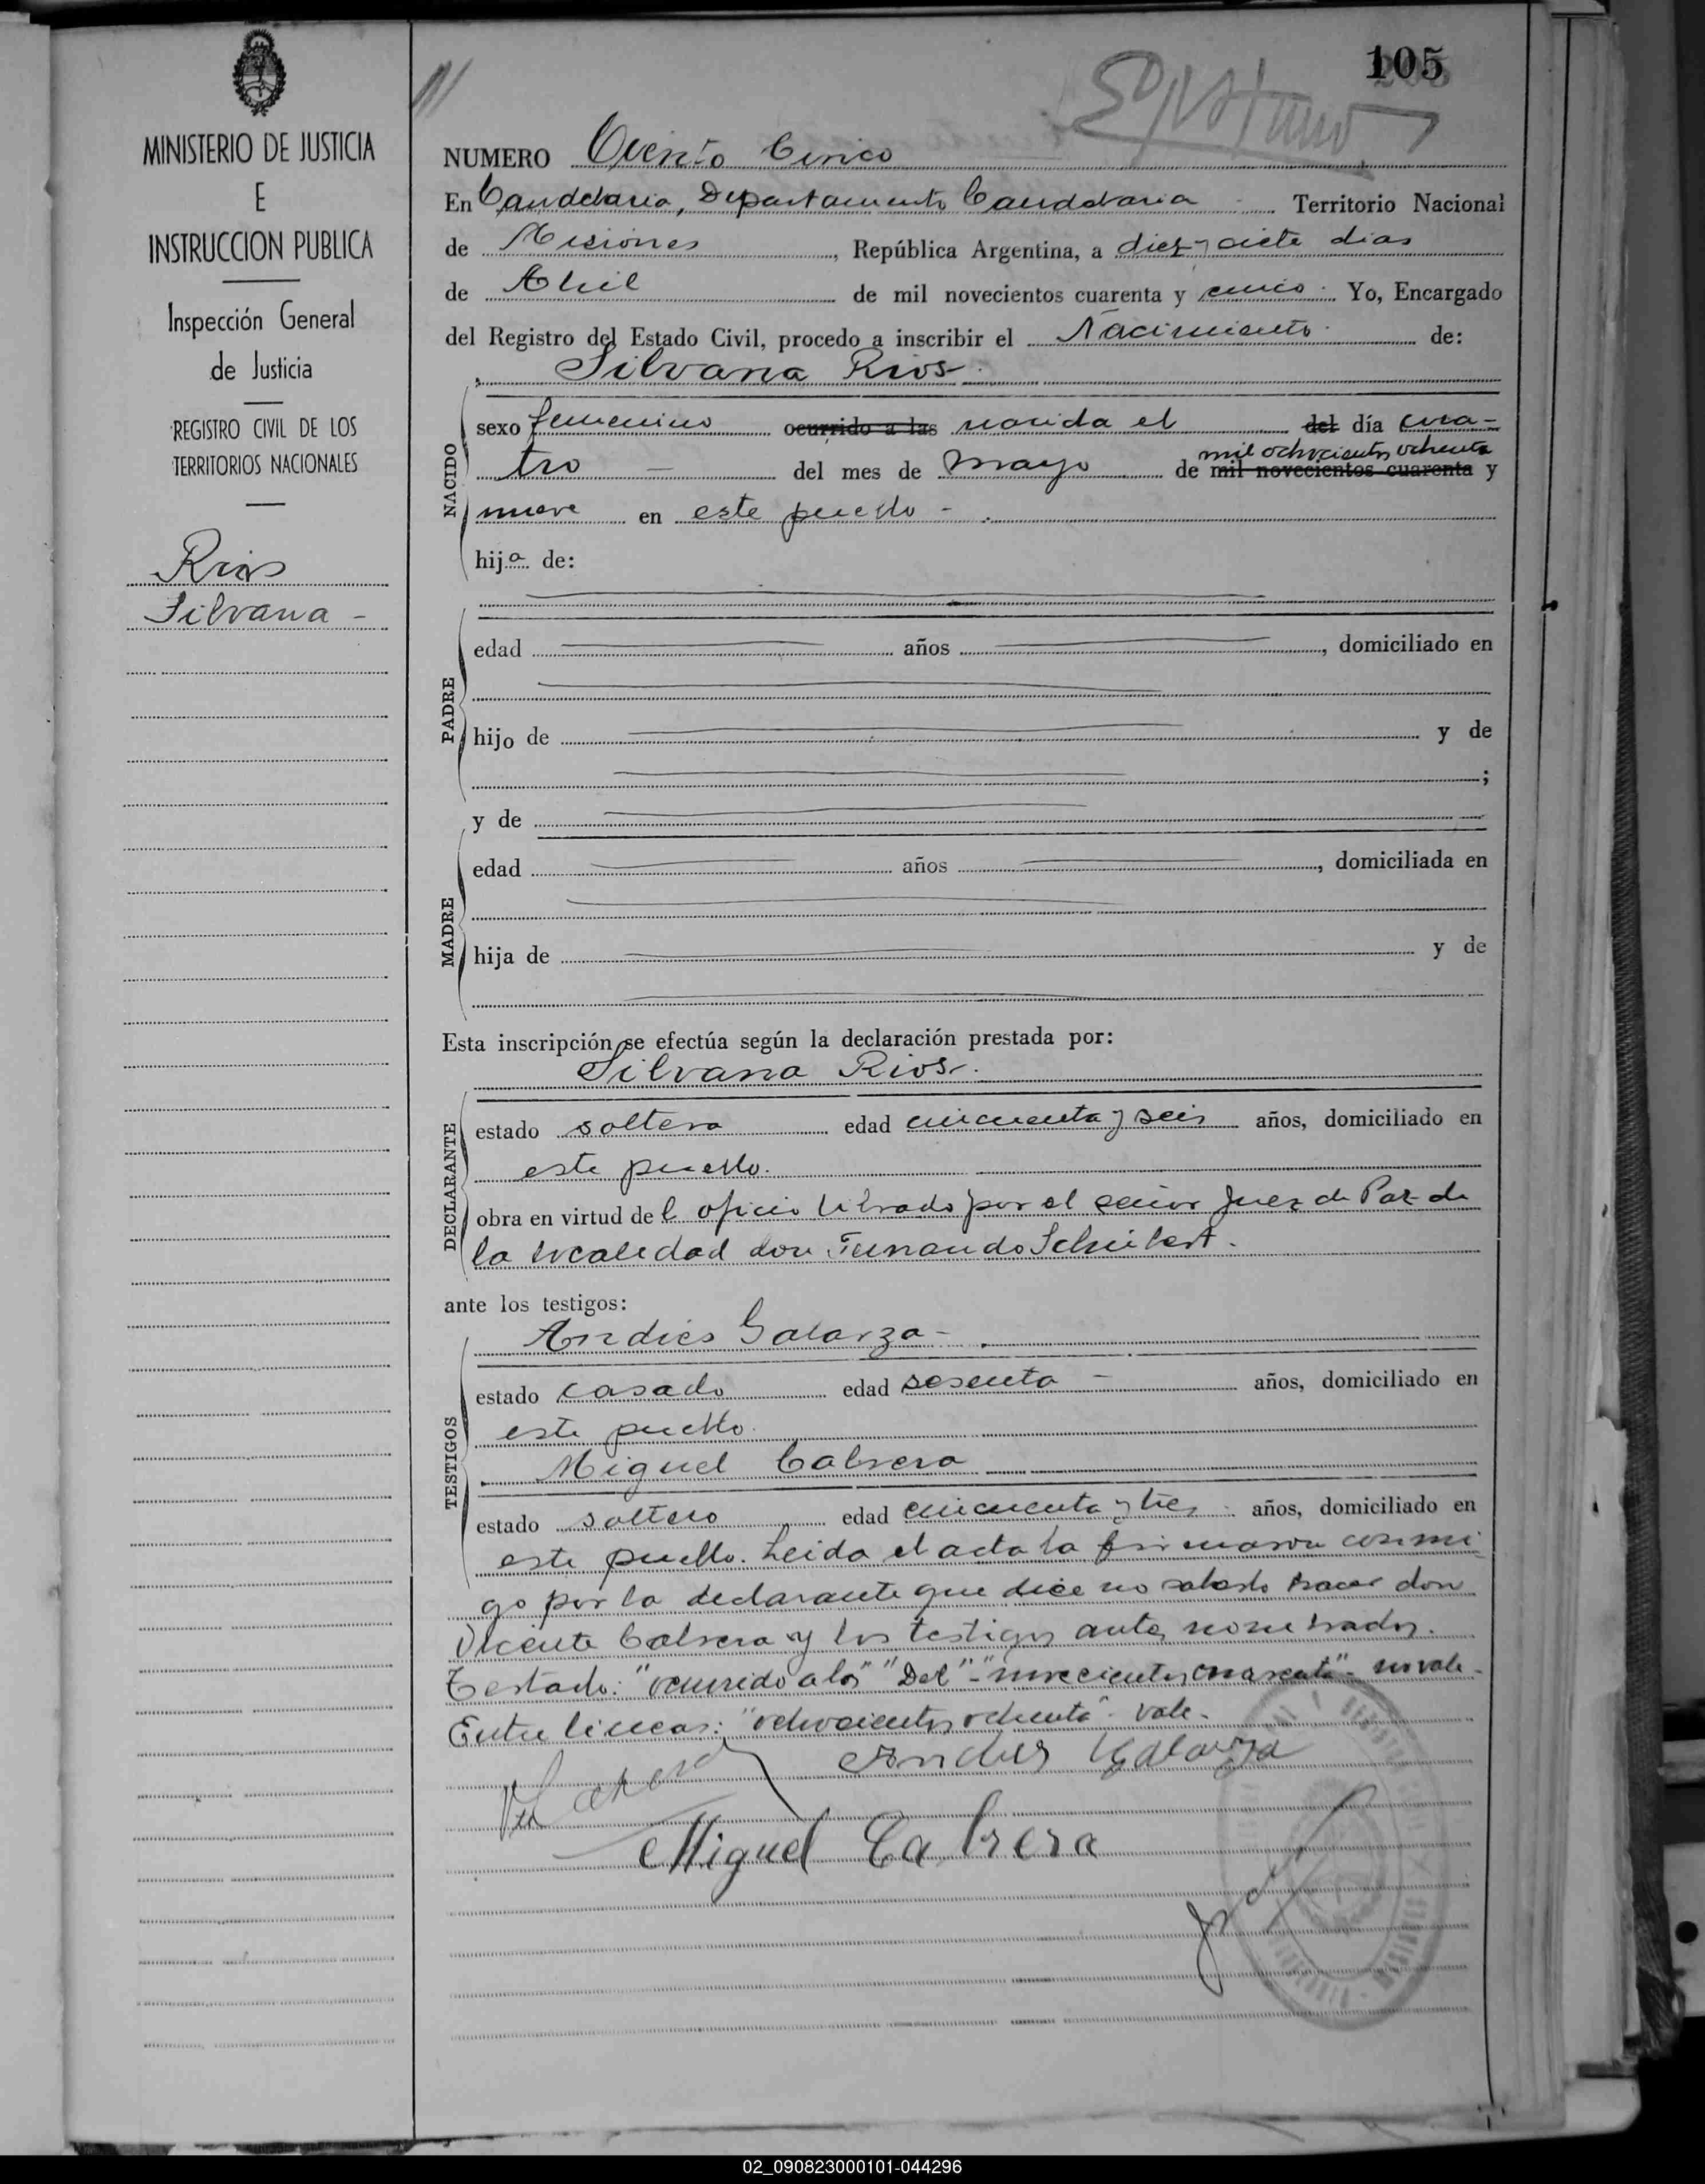 105
MINISTERIO DE JUSTICIA
E
INSTRUCCION PUBLICA
Inspección General
de Justicia
REGISTRO CIVIL DE LOS
TERRITORIOS NACIONALES
Rios
Silvana -
NUMERO Ciento Cinco
En Candelaria, Departamento Candelaria Territorio Nacional
de Misiones, República Argentina, a diez y siete dias
de Abril de mil novecientos cuarenta y cinco. Yo, Encargado
del Registro del Estado Civil, procedo a inscribir el Nacimiento de:
Silvana Rios
NACIDO
sexo femenino ocurrido a las nacida el del día cua-
mil ochocientos ochenta
tro — del mes de mayo de mil novecientos cuarenta y
nueve en este pueblo -
hija de:
PADRE
edad años, domiciliado en
hijo de y de
;
y de
MADRE
edad años, domiciliada en
hija de y de
Esta inscripción se efectúa según la declaración prestada por:
Silvana Rios
DECLARANTE
estado soltera edad cincuenta y seis años, domiciliado en
este pueblo.
obra en virtud del oficio librado por el señor Juez de Paz de
la localidad don Fernando
ante los testigos:
TESTIGOS
Andrés Galarza -
estado casado edad sesenta - años, domiciliado en
este pueblo.
Miguel Cabrera
estado soltero edad cincuenta y tres años, domiciliado en
este pueblo. Leida el acta la firmaron conmi
go por la declarante que dice no saberlo hacer don
Vicente Cabrera y los testigos antes nombrados.
Testado: "ocurrido a las" "Del" - "novecientos cuarenta" - no vale -
Entre lineas: "ochocientos ochenta" - vale -
Andres Galarza
Miguel Cabrera
02_090823000101-044296